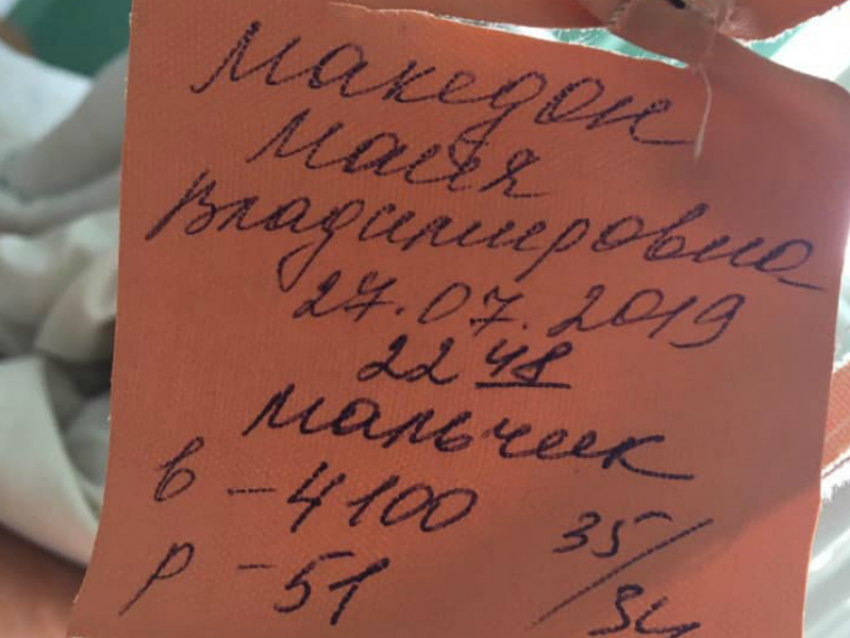 Македон
Майя
Владимировна
27.07.2019
22 48
мальчик
в - 4100
р - 51
35/34